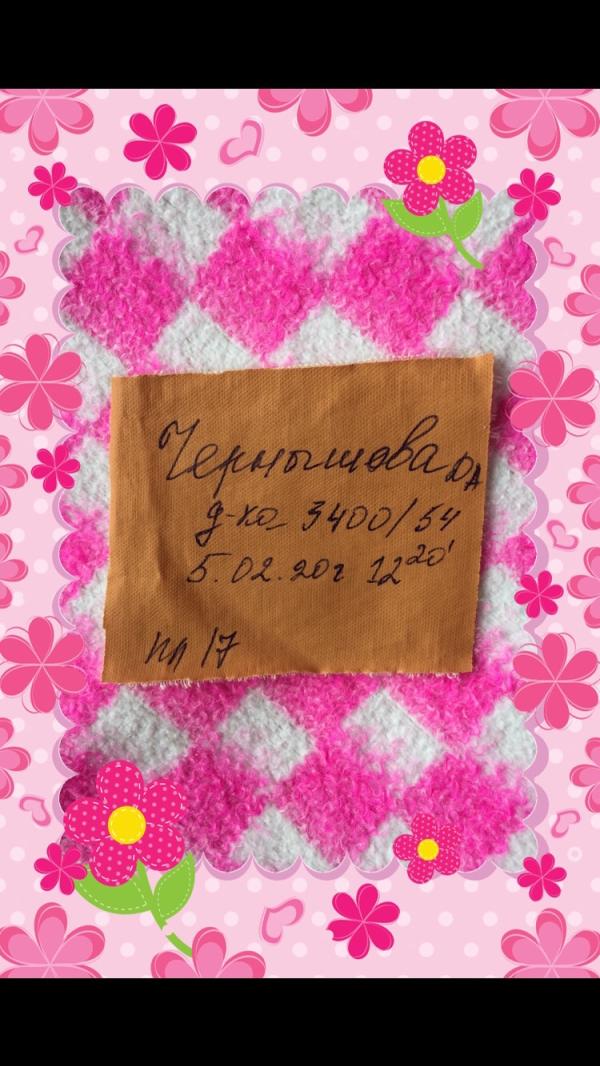 Чернышова ЮА
д-ка 3400/54
5.02.20г 12²⁰'
пл 17